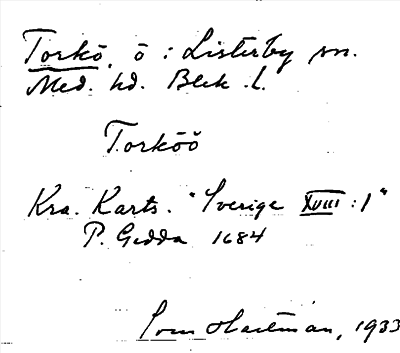 Torkö, ö : Listerby sn.
Med. hd. Blek. l.
Torköö
Kra. Karts. "Sverige XVIII : 1"
P. Gedda 1684
Hartman, 1933